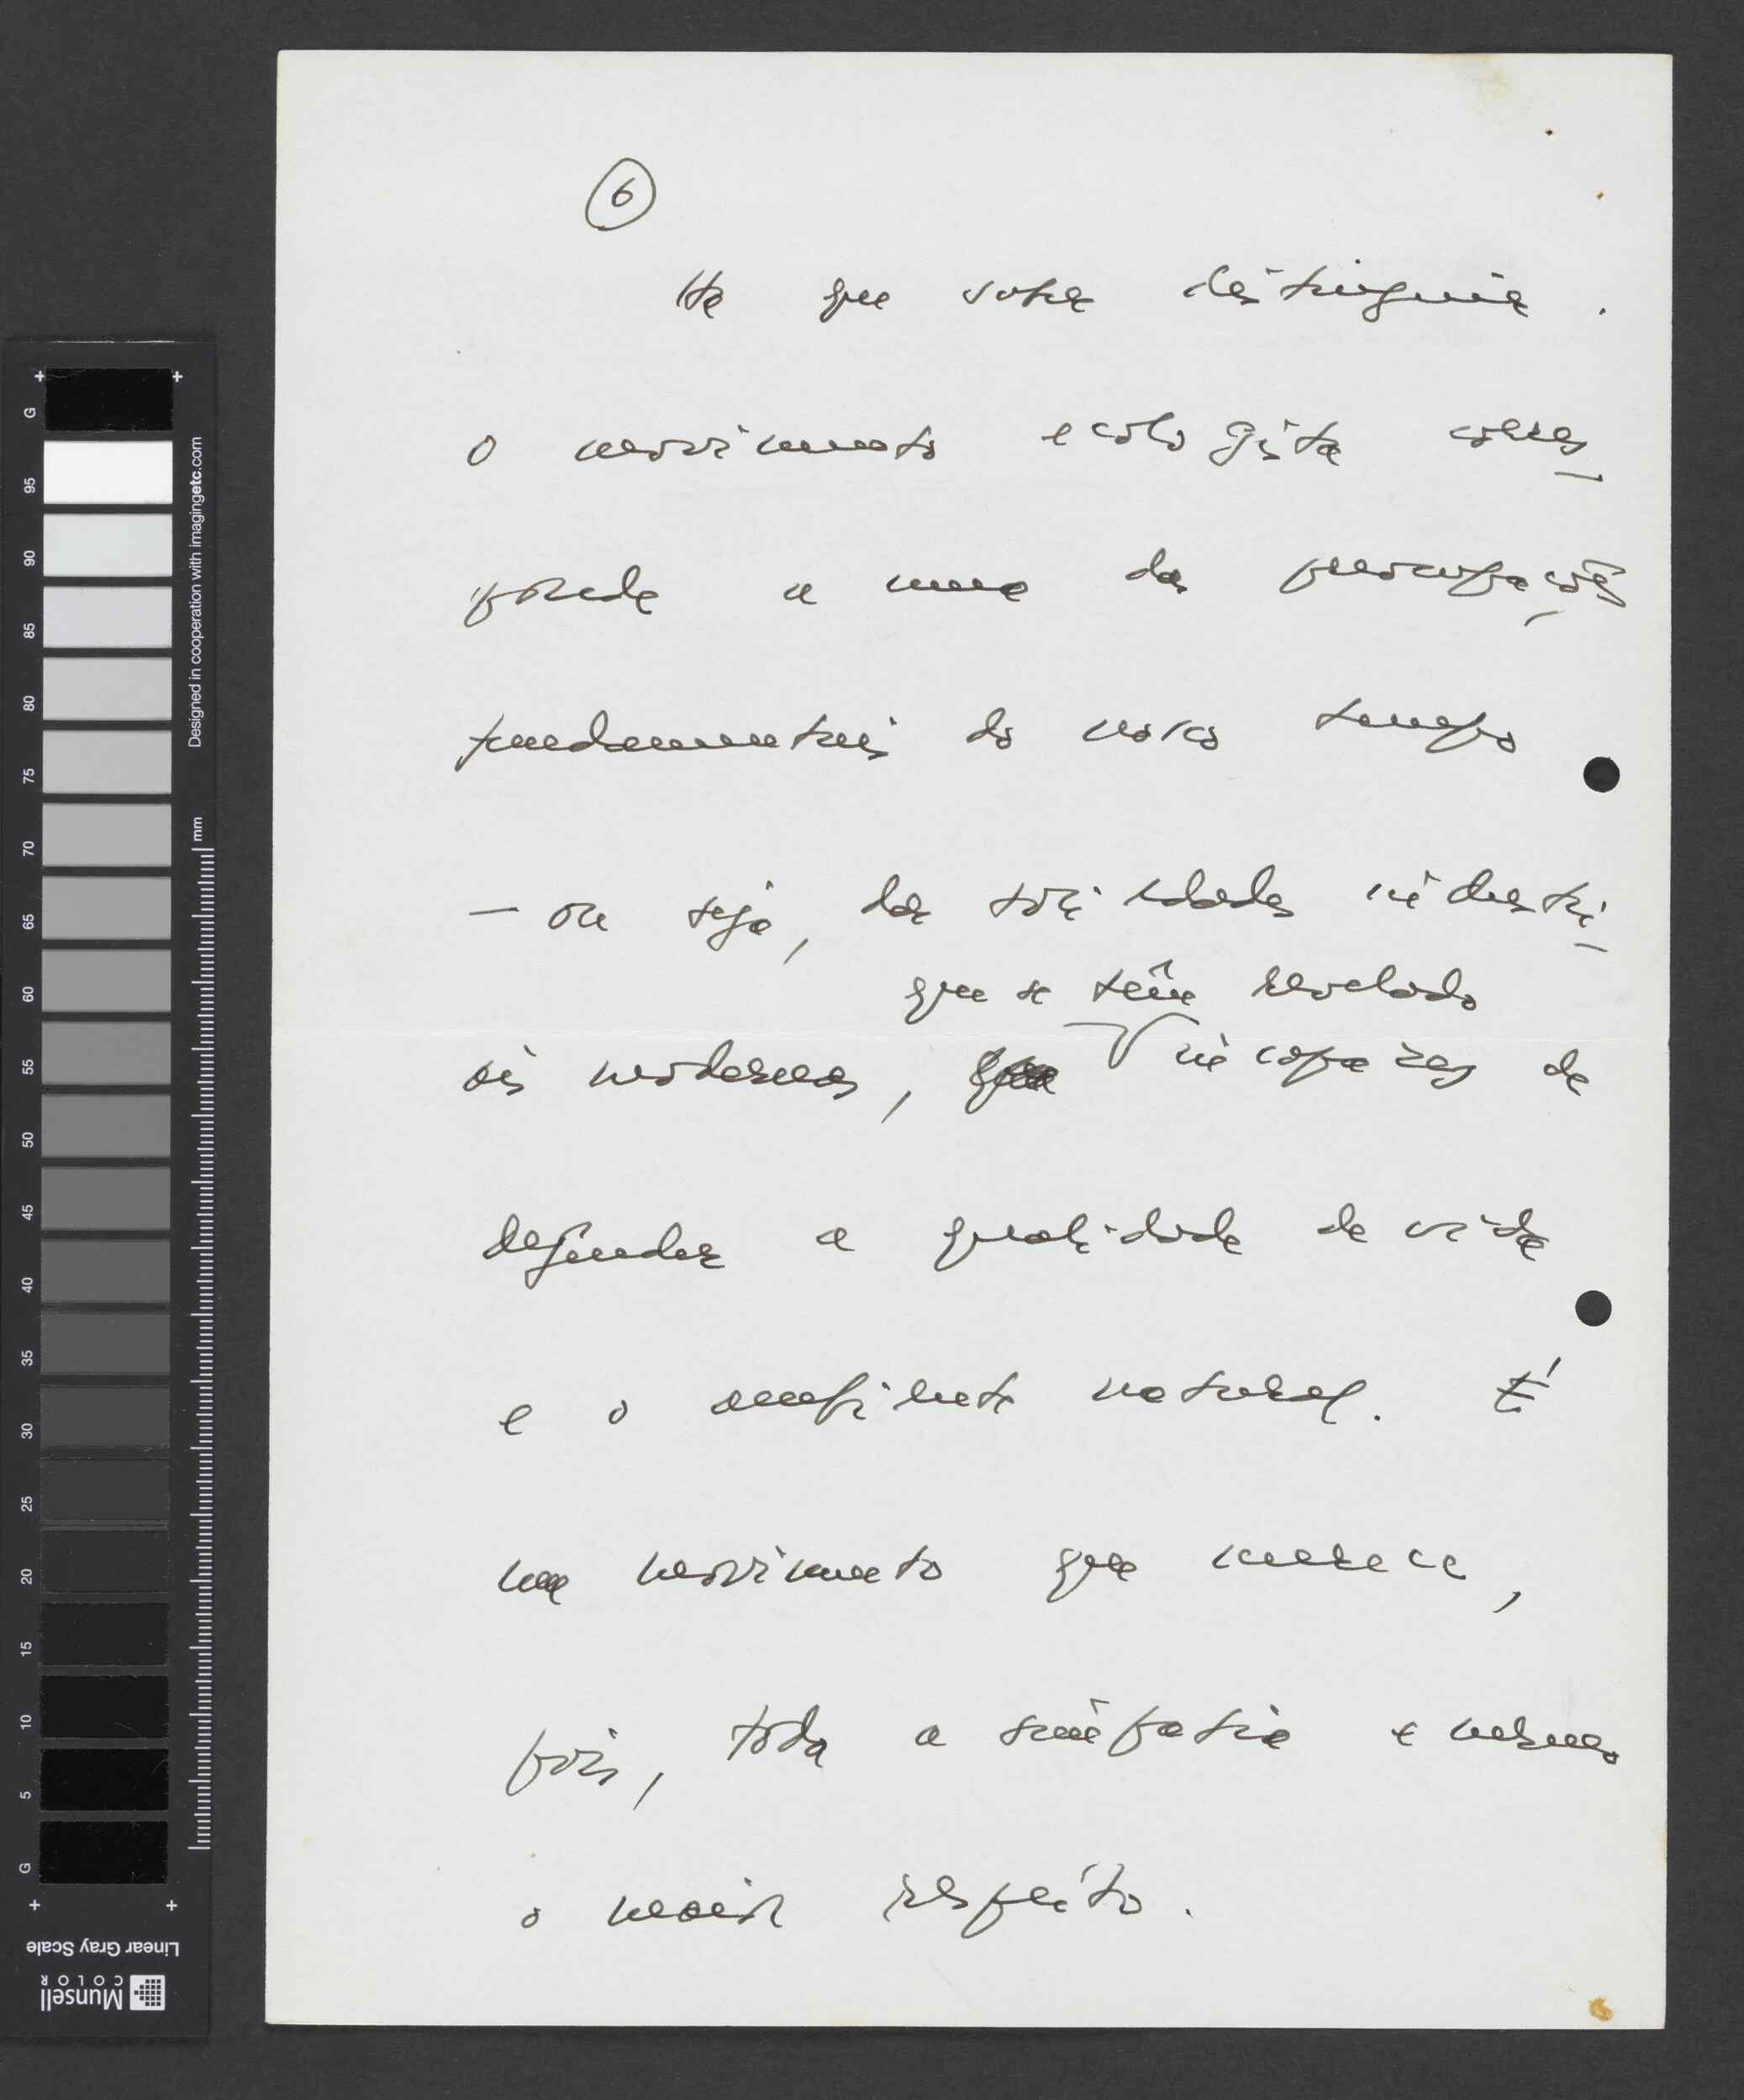 6
Há que saber distinguir.
O movimento ecologista corres-
ponde a uma das preocupações
fundamentais do nosso tempo
— ou seja, das sociedades industri-
que se têm revelado
ais modernas, incapazes de
defender a qualidade de vida
e o ambiente natural. É
um movimento que merece,
pois, toda a simpatia e mesmo
o maior respeito.
G
95
90
85
80
75
70
65
60
55
50
45
40
35
30
25
20
15
10
5
G
Designed in cooperation with imagingetc.com
mm
Linear Gray Scale
Munsell
COLOR